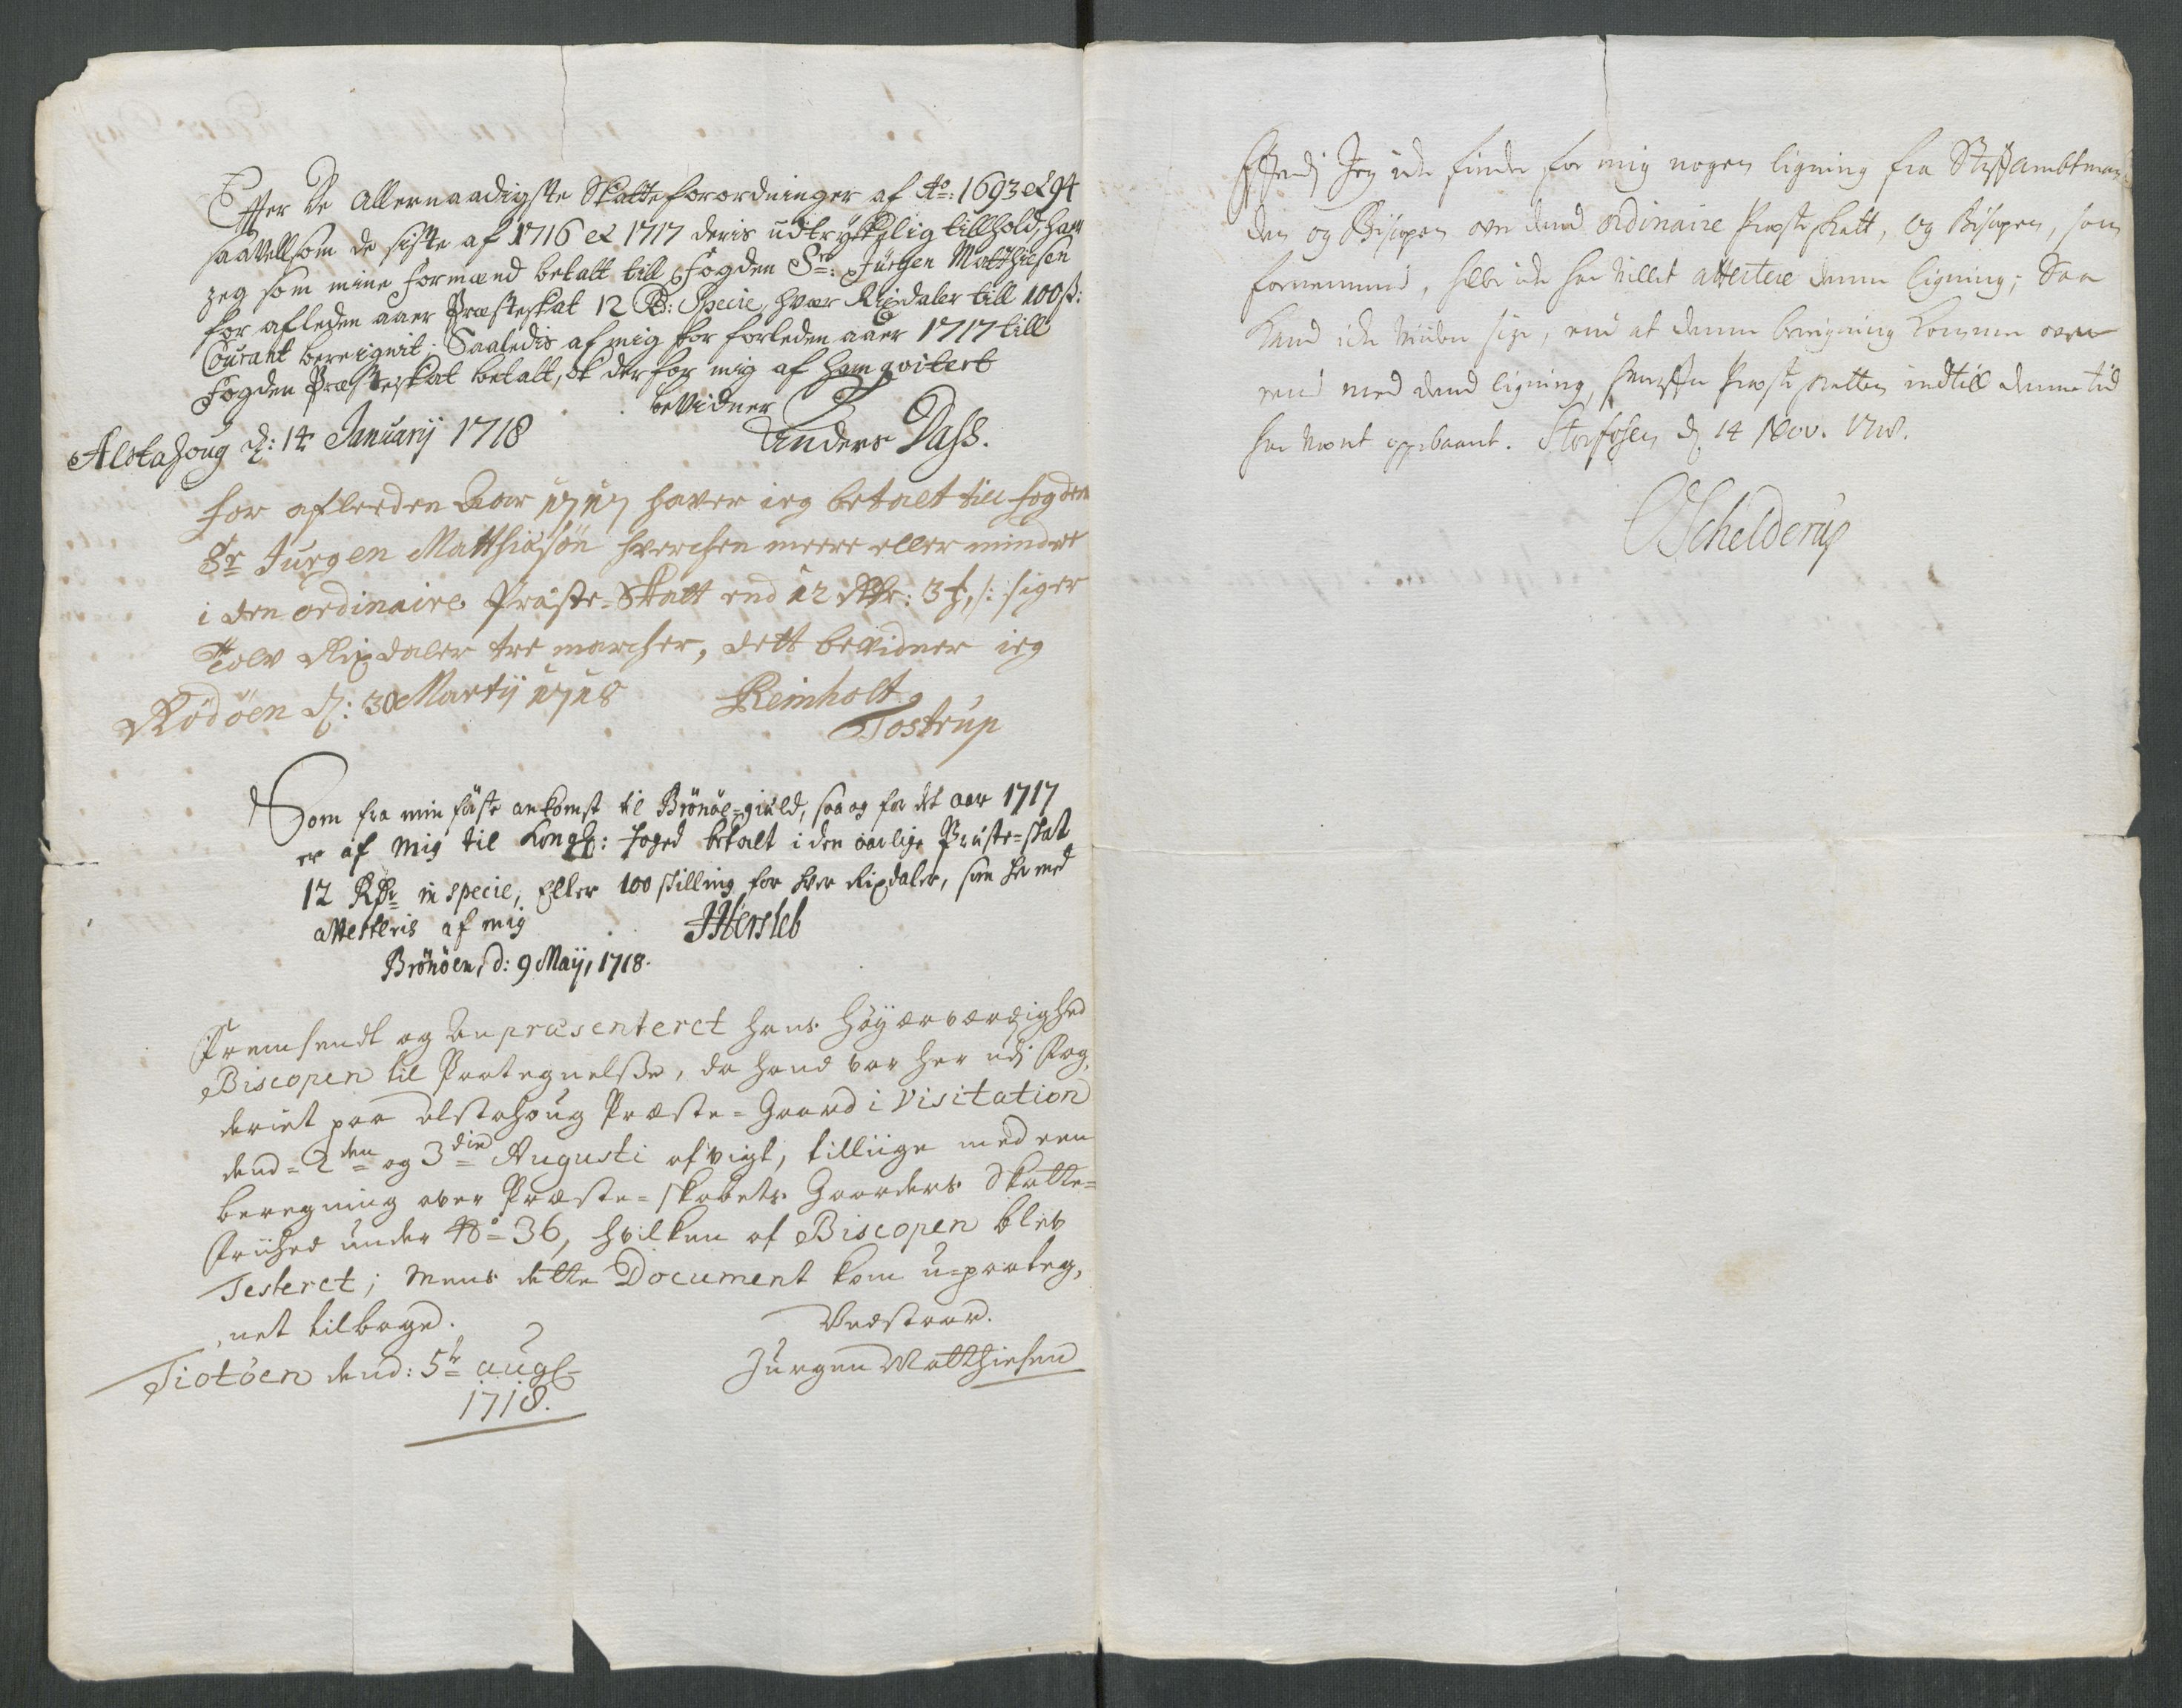 Efter De Allernaadigste Skatteforordninger af Ao: 1693 et 94
saavellsom de siste af 1716 et 1717 deris udtrÿkkelig tillhold, har
jeg som mine formænd betalt till Fogden Sr: Jürgen Matthiesen
for afleden aaer Præsteskat 12 Rd: Specie, hvær Rixdaler till 100 ß:
Courant bereignit; Saaledis af mig for forleden aaer 1717 till
Fogden Præsteskat betalt, ok derfor mig af ham qvitert
bevidner
Alstahoug d: 14 Januarij 1718 Anders Dass.
For afleeden Aar 1717 haver ieg betalt till fogden
Sr Jurgen Matthiasøn hverchen meere eller mindre
i den ordinaire Præste-Skatt end 12 Rdr: 3 ƒ, /: siger
Tolv Rixdaler tre marcher, dett bevidner ieg
Rödöen d: 30 Martij 1718 Reinholt
Tostrup
Som fra min føste ankomst til Brönöe-gield, saa og for det aar 1717
er af mig til Kongl: foged betalt i den aarlige Præste-skat
12 Rdr in specie, Eller 100 skilling for hver Rixdaler, som her med
attesteris af mig JHersleb
Brönöen, d: 9 Maij, 1718.
Fremsendt og Anpræsenteret hans Høÿærværdighed
Biscopen til Paategnelße, da hand var her udj Fog,
deriet paa Alstahoug Præste-Gaard i Visitation
dend 2den og 3die Augusti afvigt, tilliige med een
beregning over Præste-skabets Gaarders Skatte-
Friihed under No 36, hvilken af Biscopen blev
Testeret; Mens dette Document kom u-paateg,
net tilbage. Vedstaar.
Tiotöen dend: 5te augl
1718. Jurgen Matthiesen
Efterdj Jeg icke finder for mig nogen ligning fra Stiftambtman-
den og Bispen over dend ordinaire Præsteskatt, og Bispen, som
fornemmes, heller icke har villet attestere denne ligning; Saa
kand icke viidere sige, end at denne beregning kommer over
eens med dend ligning, hvorefter Præsteskatten indtill denne tid
har været oppebaaret. Storfosen d 14 Nov. 1718.
OSchelderup